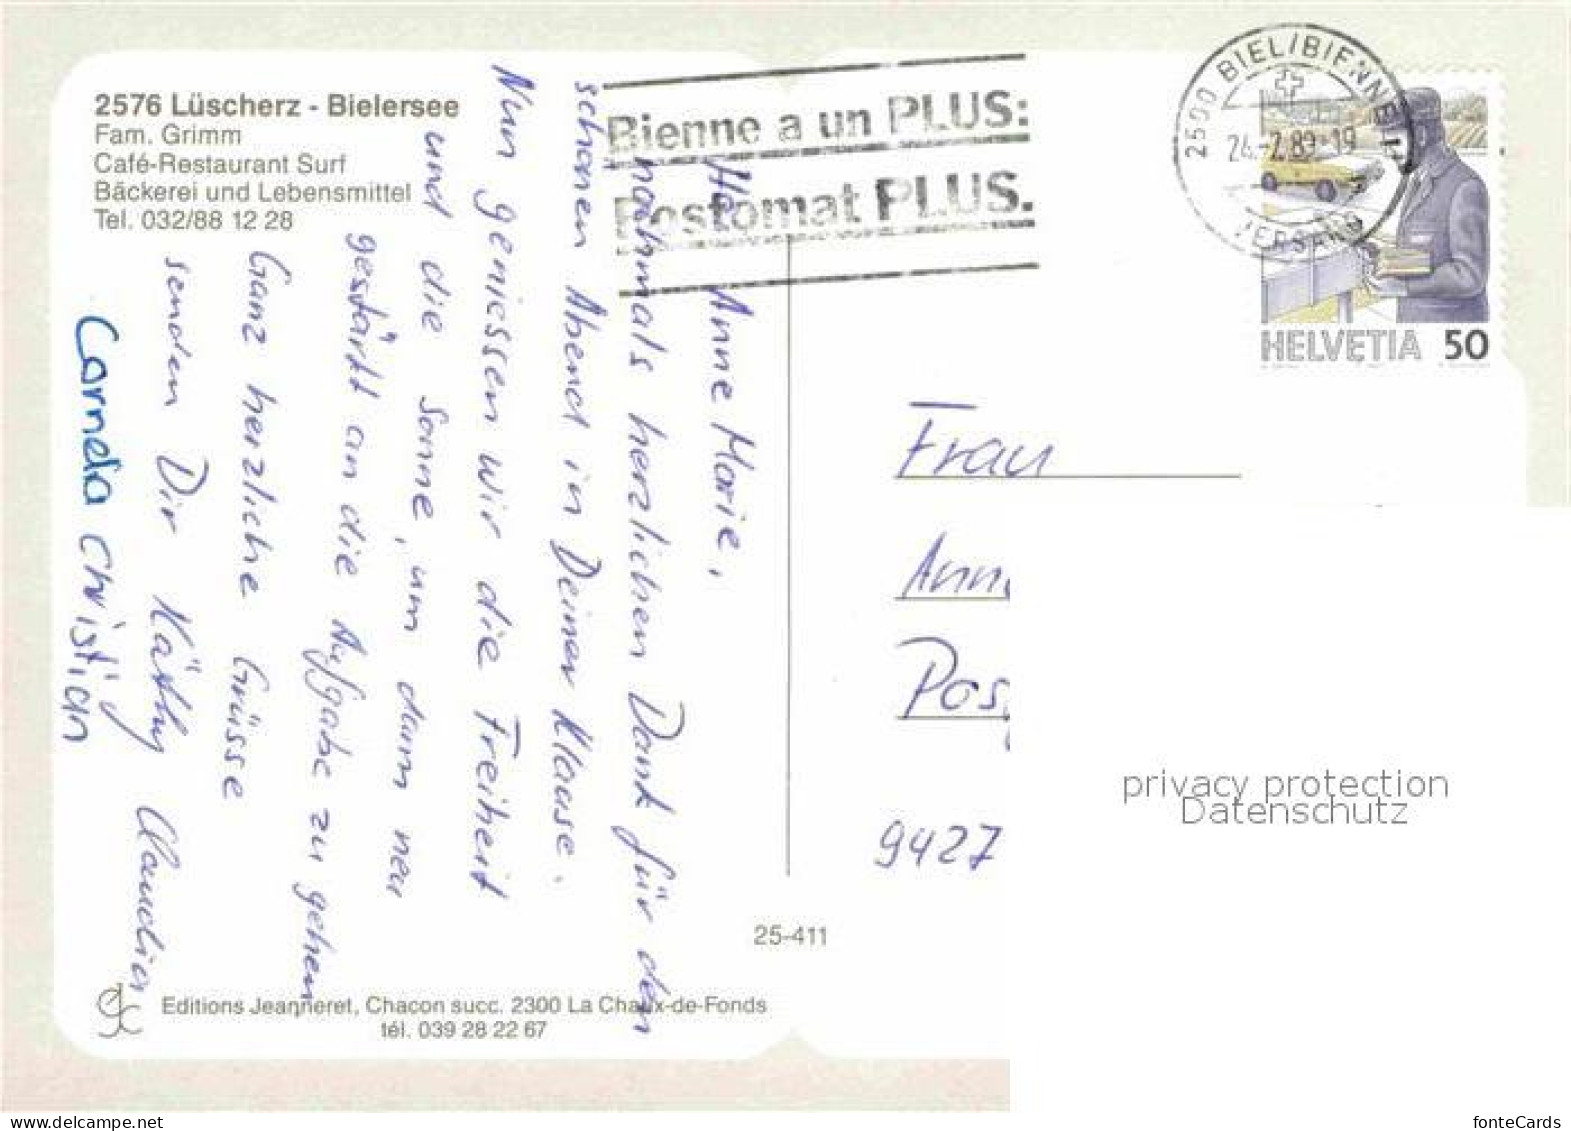 2576 Lüscherz - Bielersee
Fam. Grimm
Café-Restaurant Surf
Bäckerei und Lebensmittel
Tel. 032/88 12 28
Bienne a un PLUS:
Postomat PLUS.
2500 BIEL/BIENNE 1
24.-7.89-19
VERSAND
HELVETIA 50
Anne Marie,
nochmals herzlichen Dank für den
schönen Abend in Deiner Klause.
Nun geniessen wir die Freiheit
und die Sonne, um dann neu
gestärkt an die Aufgabe zu gehen
Ganz herzliche Grüsse
senden Dir Käthy
Cornelia Christian
Frau
Ann
Pos
9427
25-411
Editions Jeanneret, Chacon succ. 2300 La Chaux-de-Fonds
tél. 039 28 22 67
privacy protection
Datenschutz
delcampe.net
fonteCards